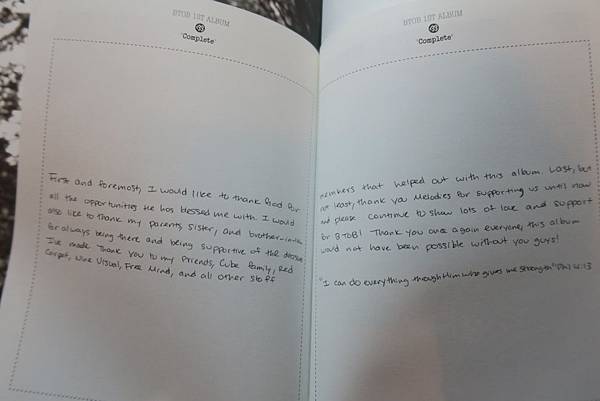 BTOB 1ST ALBUM
'Complete'
First and foremost, I would like to thank God for
all the opportunities He has blessed me with. I would
also like to thank my parents, sister, and brother-in-law
for always being there and being supportive of the decisions
I've made. Thank you to my friends, Cube family, Red
Carpet, Wine Visual, Free Mind, and all other staff
BTOB 1ST ALBUM
'Complete'
members that helped out with this album. Last, but
not least, thank you Melodies for supporting us until now
and please continue to show lots of love and support
for BTOB! Thank you once again everyone, this album
would not have been possible without you guys!
"I can do everything though Him who gives me strength" Phil 4:13